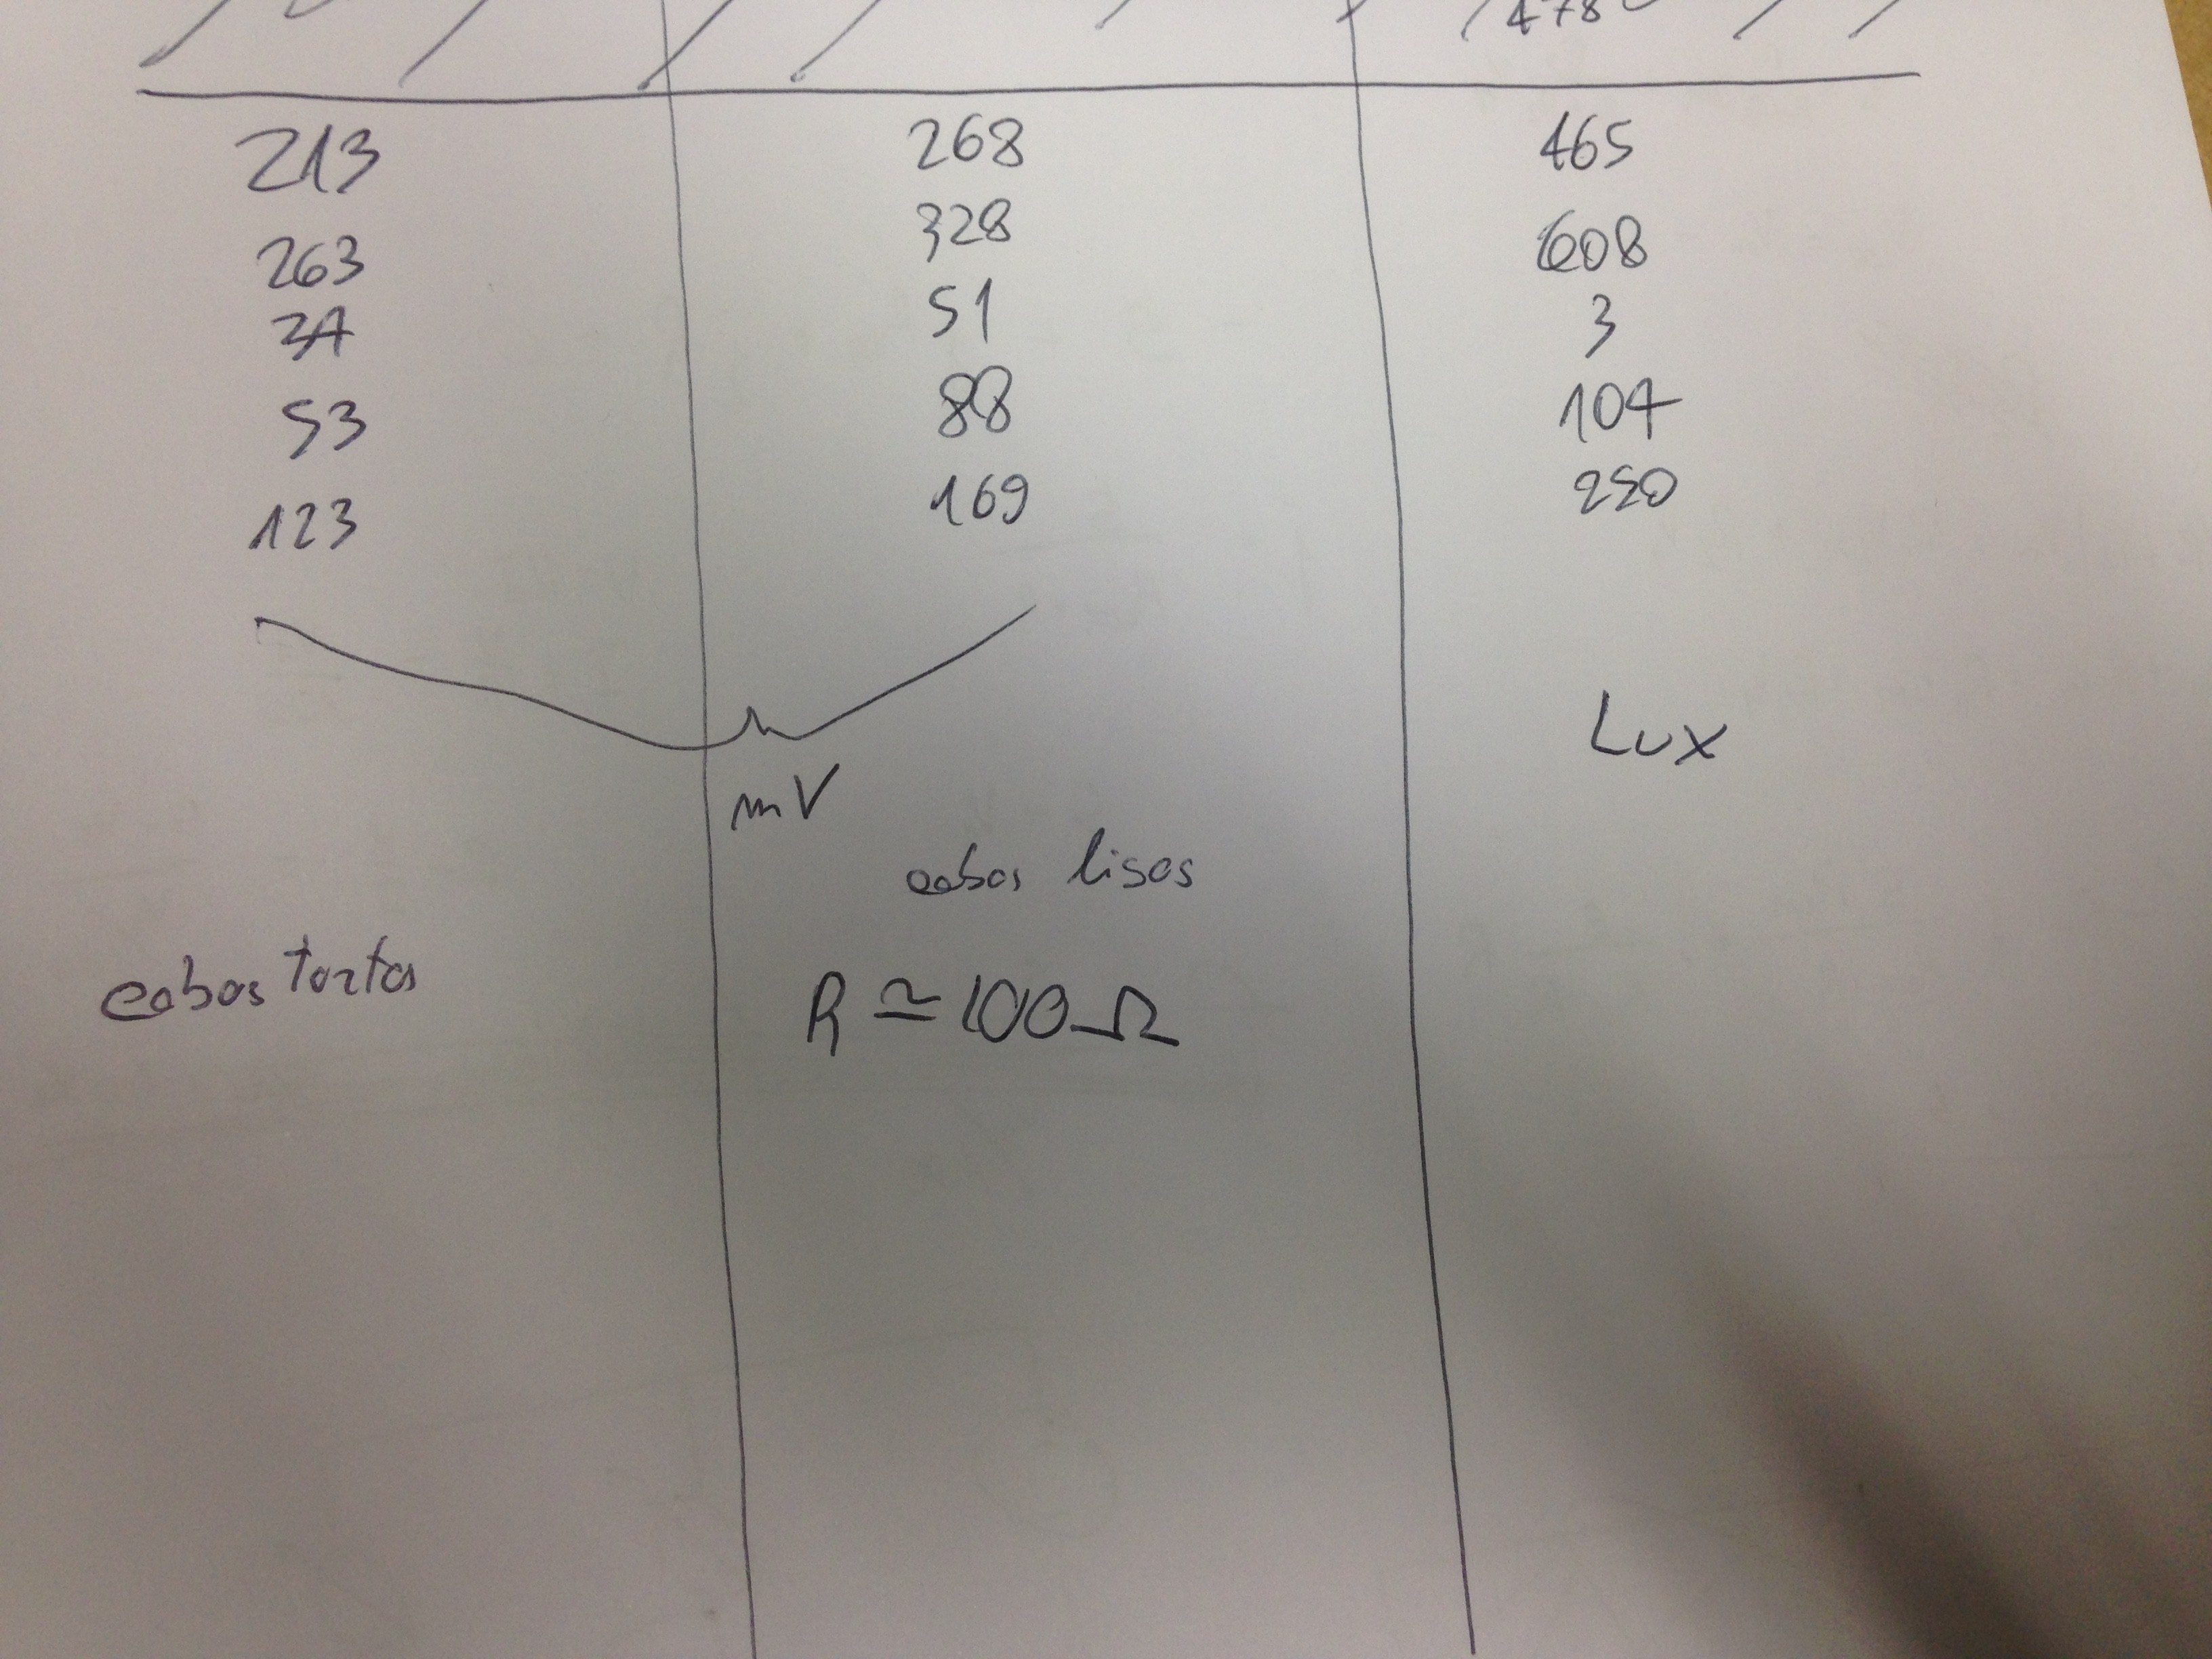 478
213 268 465
263 328 608
34 51 3
53 88 104
123 169 250
Lux
mV
cabos lisos
cabos tortos
R ≃ 100 Ω